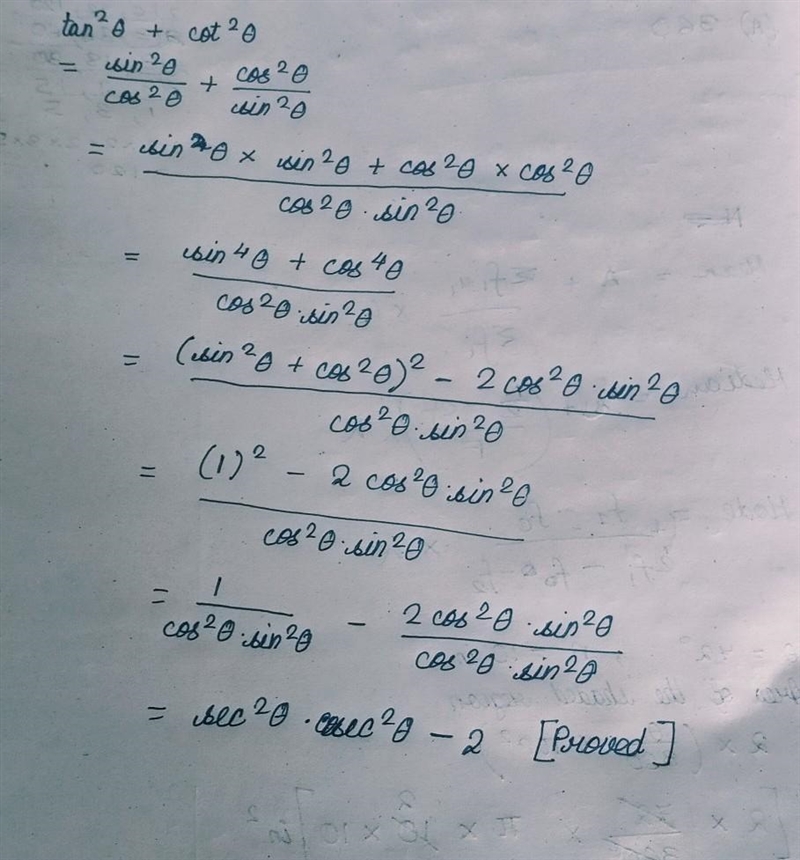 tan²θ + cot²θ
= sin²θ/cos²θ + cos²θ/sin²θ
= sin²θ × sin²θ + cos²θ × cos²θ / cos²θ · sin²θ
= sin⁴θ + cos⁴θ / cos²θ · sin²θ
= (sin²θ + cos²θ)² - 2cos²θ · sin²θ / cos²θ · sin²θ
= (1)² - 2 cos²θ · sin²θ / cos²θ · sin²θ
= 1 / cos²θ · sin²θ - 2cos²θ · sin²θ / cos²θ · sin²θ
= sec²θ · cosec²θ - 2 [Proved]